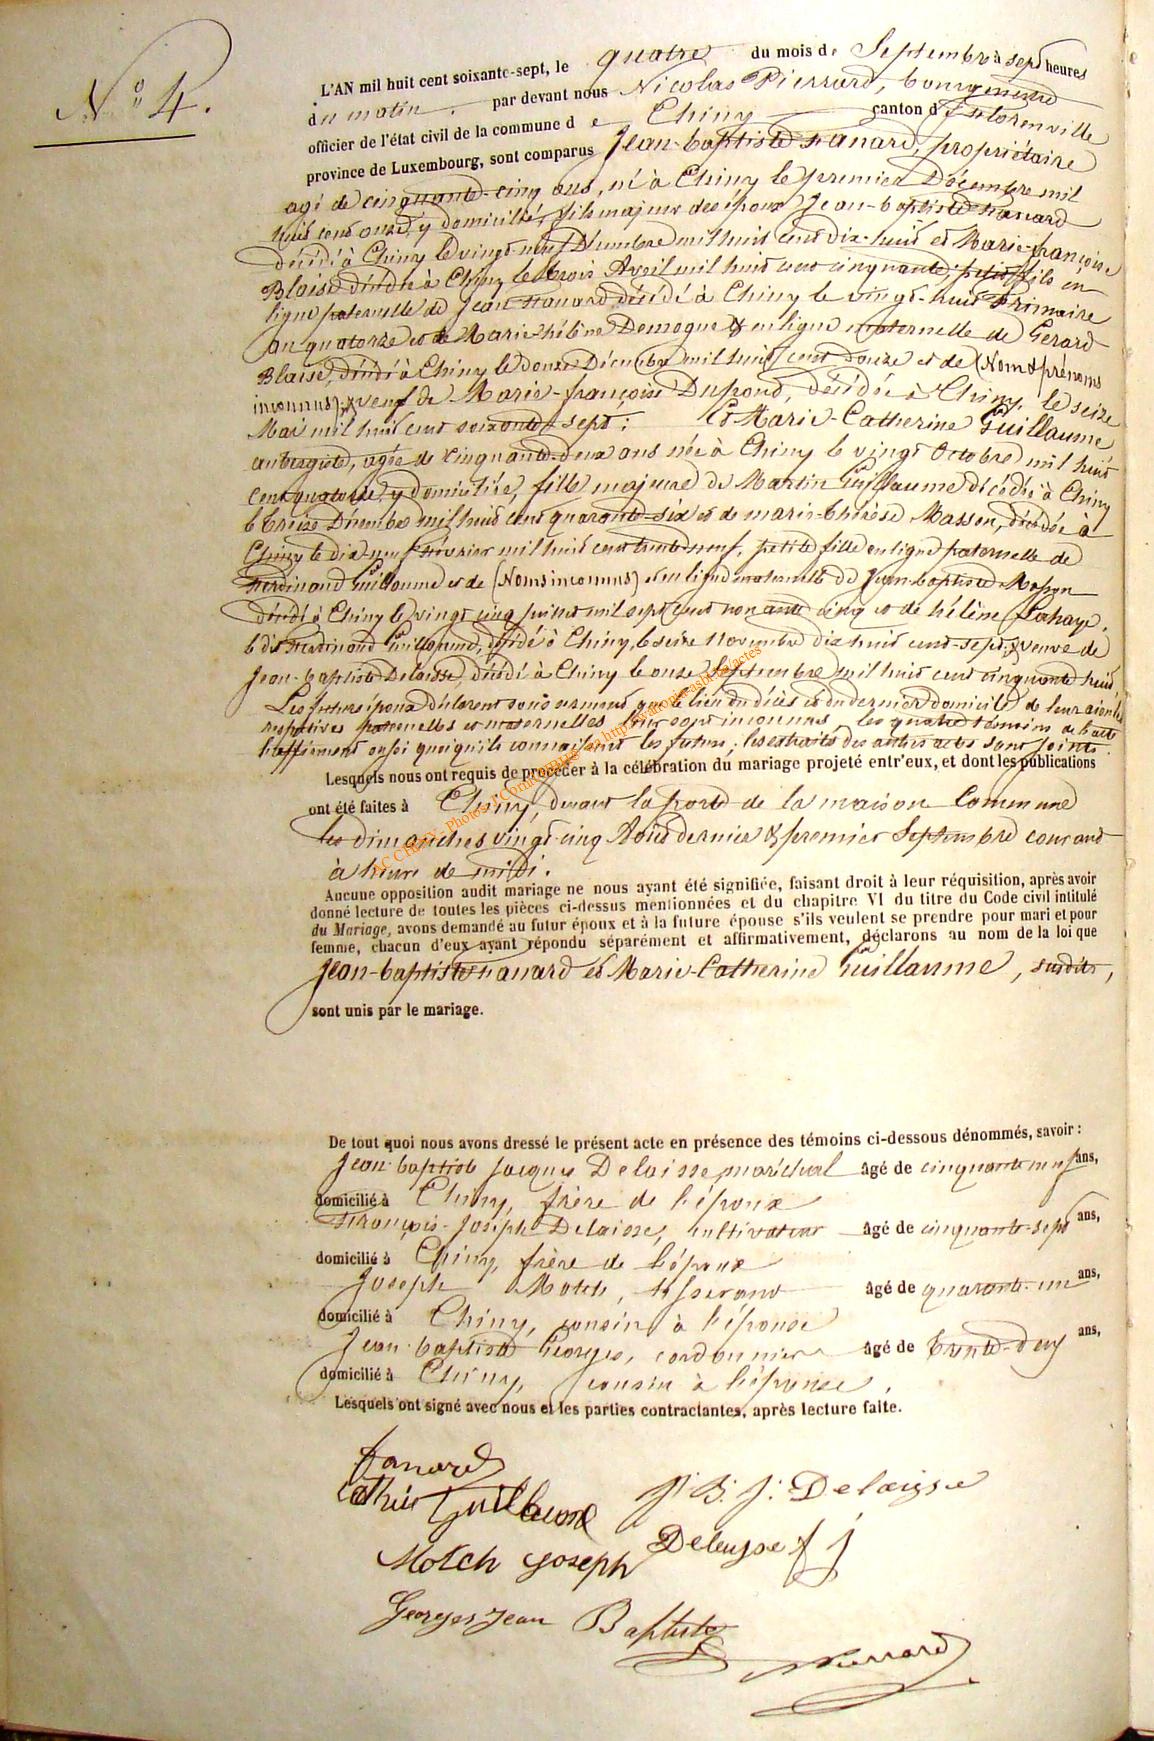 N° 4.
L'AN mil huit cent soixante-sept, le quatre du mois de Septembre à sept heures
du matin, par devant nous Nicolas Pierrard, bourgmestre
officier de l'état civil de la commune de Chiny canton de Florenville
province de Luxembourg, sont comparus Jean-baptiste hanard, propriétaire
agé de cinquante-cinq ans, né à Chiny le premier Décembre mil
huit cent onze, y domicilié, fils majeur des époux Jean-baptiste hanard
décédé à Chiny le vingt-neuf Décembre mil huit cent dix-huit et Marie-françoise
Blaise décédée à Chiny le trois Avril mil huit cent cinquante, petit fils en
ligne paternelle de Jean hanard décédé à Chiny le vingt-huit Frimaire
an quatorze et de Marie-hélène Demogue & en ligne maternelle de Gerard
Blaise, décédé à Chiny le douze Décembre mil huit cent douze et de (Nom & prénoms
inconnus); veuf de Marie-françoise Dupond, décédée à Chiny, le seize
Mai mil huit cent soixante-sept; Et Marie-Catherine Guillaume
aubergiste, agée de cinquante-deux ans née à Chiny le vingt Octobre mil huit
cent quatorze, y domiciliée, fille majeure de Martin Guillaume décédé à Chiny
le treize Décembre mil huit cent quarante-six et de marie-thérèse Masson, décédée à
Chiny le dix neuf février mil huit cent trente neuf, petite fille en ligne paternelle de
Ferdinand Guillaume et de (Noms inconnus) et en ligne maternelle de Jean-baptiste Masson
décédé à Chiny le vingt cinq juillet mil sept cent nonante cinq et de hélène Lahaye.
le dit Ferdinand Guillaume, décédé à Chiny, le seize Novembre dix huit cent-sept; veuve de
Jean-baptiste Delaisse, décédé à Chiny le onze Septembre mil huit cent cinquante huit.
Les futurs époux déclarent sous serment que le lieu du décès et du dernier domicile de leurs aïeuls
respectives paternelles et maternelles leur sont inconnus, les quatre témoins de l'acte
l'affirment aussi quoiqu'ils connaissent les futurs; les extraits des autres actes sont joints.
Lesquels nous ont requis de procéder à la célébration du mariage projeté entr'eux, et dont les publications
ont été faites à Chiny, devant la porte de la maison Commune
les dimanches vingt-cinq Août dernier & premier Septembre courant
à heure de midi.
Aucune opposition audit mariage ne nous ayant été signifiée, faisant droit à leur réquisition, après avoir
donné lecture de toutes les pièces ci-dessus mentionnées et du chapitre VI du titre du Code civil intitulé
du Mariage, avons demandé au futur époux et à la future épouse s'ils veulent se prendre pour mari et pour
femme, chacun d'eux ayant répondu séparément et affirmativement, déclarons au nom de la loi que
Jean-baptiste hanard et Marie-Catherine Guillaume, susdits,
sont unis par le mariage.
De tout quoi nous avons dressé le présent acte en présence des témoins ci-dessous dénommés, savoir :
Jean-baptiste Jacques Delaisse maréchal âgé de cinquante neuf ans,
domicilié à Chiny, frère de l'époux
François-Joseph Delaisse, cultivateur âgé de cinquante-sept ans,
domicilié à Chiny, frère de l'époux
Joseph Motch, tisserand âgé de quarante-un ans,
domicilié à Chiny, cousin à l'épouse
Jean baptiste Georges, cordonnier âgé de trente-deux ans,
domicilié à Chiny, cousin à l'épouse,
Lesquels ont signé avec nous et les parties contractantes, après lecture faite.
hanard
Cather Guillaume
J. B. J. Delaisse
Delaisse f j
Motch joseph
Georges jean Baptiste
Pierrard